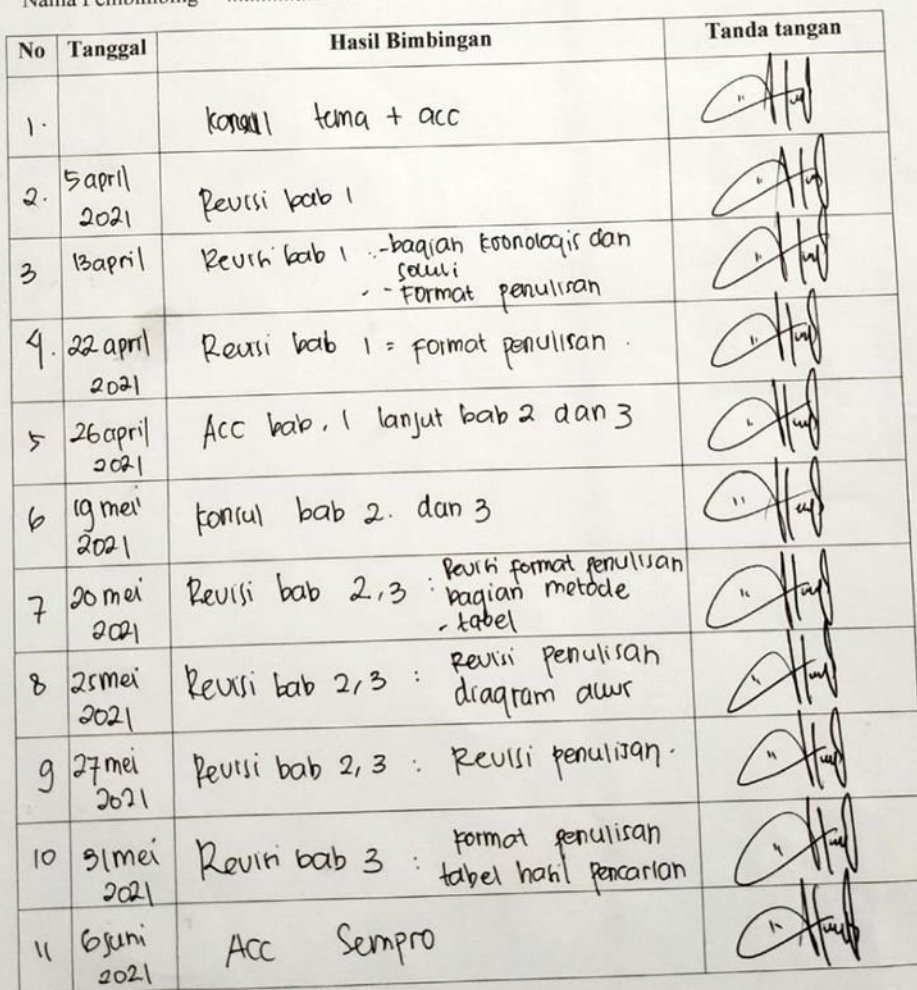 Nama Pembimbing
No Tanggal Hasil Bimbingan Tanda tangan
1. Konsul tema + acc
2. 5 april 2021 Revisi bab 1
3 13 april Revisi bab 1 : - bagian kronologis dan
solusi
- Format penulisan
4. 22 april 2021 Revisi bab 1 = format penulisan.
5 26 april 2021 Acc bab. 1 lanjut bab 2 dan 3
6 19 mei 2021 Konsul bab 2. dan 3
7 20 mei 2021 Revisi bab 2,3 : Revisi format penulisan
bagian metode
- tabel
8 25 mei 2021 Revisi bab 2,3 : Revisi penulisan
diagram alur
9 27 mei 2021 Revisi bab 2,3 : Revisi penulisan.
10 31 mei 2021 Revisi bab 3 : Format penulisan
tabel hasil pencarian
11 6 juni 2021 Acc Sempro